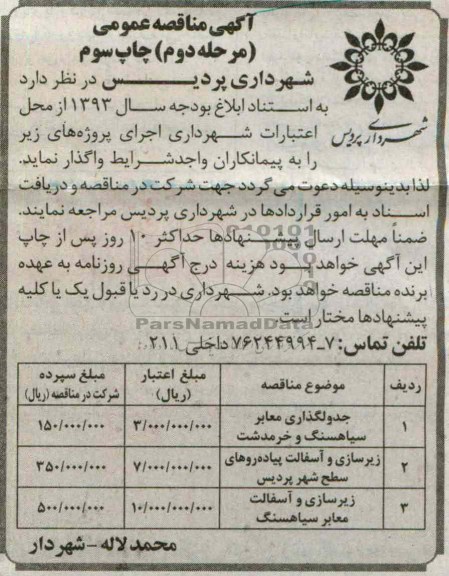 آگهی مناقصه عمومی
(مرحله دوم) چاپ سوم
شهرداری پردیس
شهرداری پردیس در نظر دارد
به استناد ابلاغ بودجه سال ۱۳۹۳ از محل
اعتبارات شهرداری اجرای پروژه‌های زیر
را به پیمانکاران واجدشرایط واگذار نماید.
لذا بدینوسیله دعوت می گردد جهت شرکت در مناقصه و دریافت
اسناد به امور قراردادها در شهرداری پردیس مراجعه نمایند.
ضمناً مهلت ارسال پیشنهادها حداکثر ۱۰ روز پس از چاپ
این آگهی خواهد بود هزینه درج آگهی روزنامه به عهده
برنده مناقصه خواهد بود. شهرداری در رد یا قبول یک یا کلیه
پیشنهادها مختار است.
ParsNamadData
تلفن تماس: ۷-۷۶۲۴۴۹۹۴ داخلی ۲۱۱
ردیف موضوع مناقصه مبلغ اعتبار (ریال) مبلغ سپرده شرکت در مناقصه (ریال)
۱ جدولگذاری معابر سیاهسنگ و خرمدشت ۳/۰۰۰/۰۰۰/۰۰۰ ۱۵۰/۰۰۰/۰۰۰
۲ زیرسازی و آسفالت پیاده‌روهای سطح شهر پردیس ۷/۰۰۰/۰۰۰/۰۰۰ ۳۵۰/۰۰۰/۰۰۰
۳ زیرسازی و آسفالت معابر سیاهسنگ ۱۰/۰۰۰/۰۰۰/۰۰۰ ۵۰۰/۰۰۰/۰۰۰
محمد لاله - شهردار